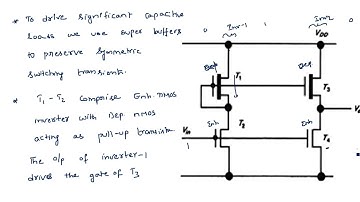 * To drive significant capacitive
loads we use super buffers
to preserve symmetric
switching transients.
* T₁-T₂ Comprise Enh. nMOS
inverter with Dep nMOS
acting as pull-up transistor
The o/p of inverter-1
drives the gate of T₃
Inv-1
Inv2
VDD
Dep
T₁
Dep
T₃
Vin
Enh
T₂
Enh
T₄
1
0